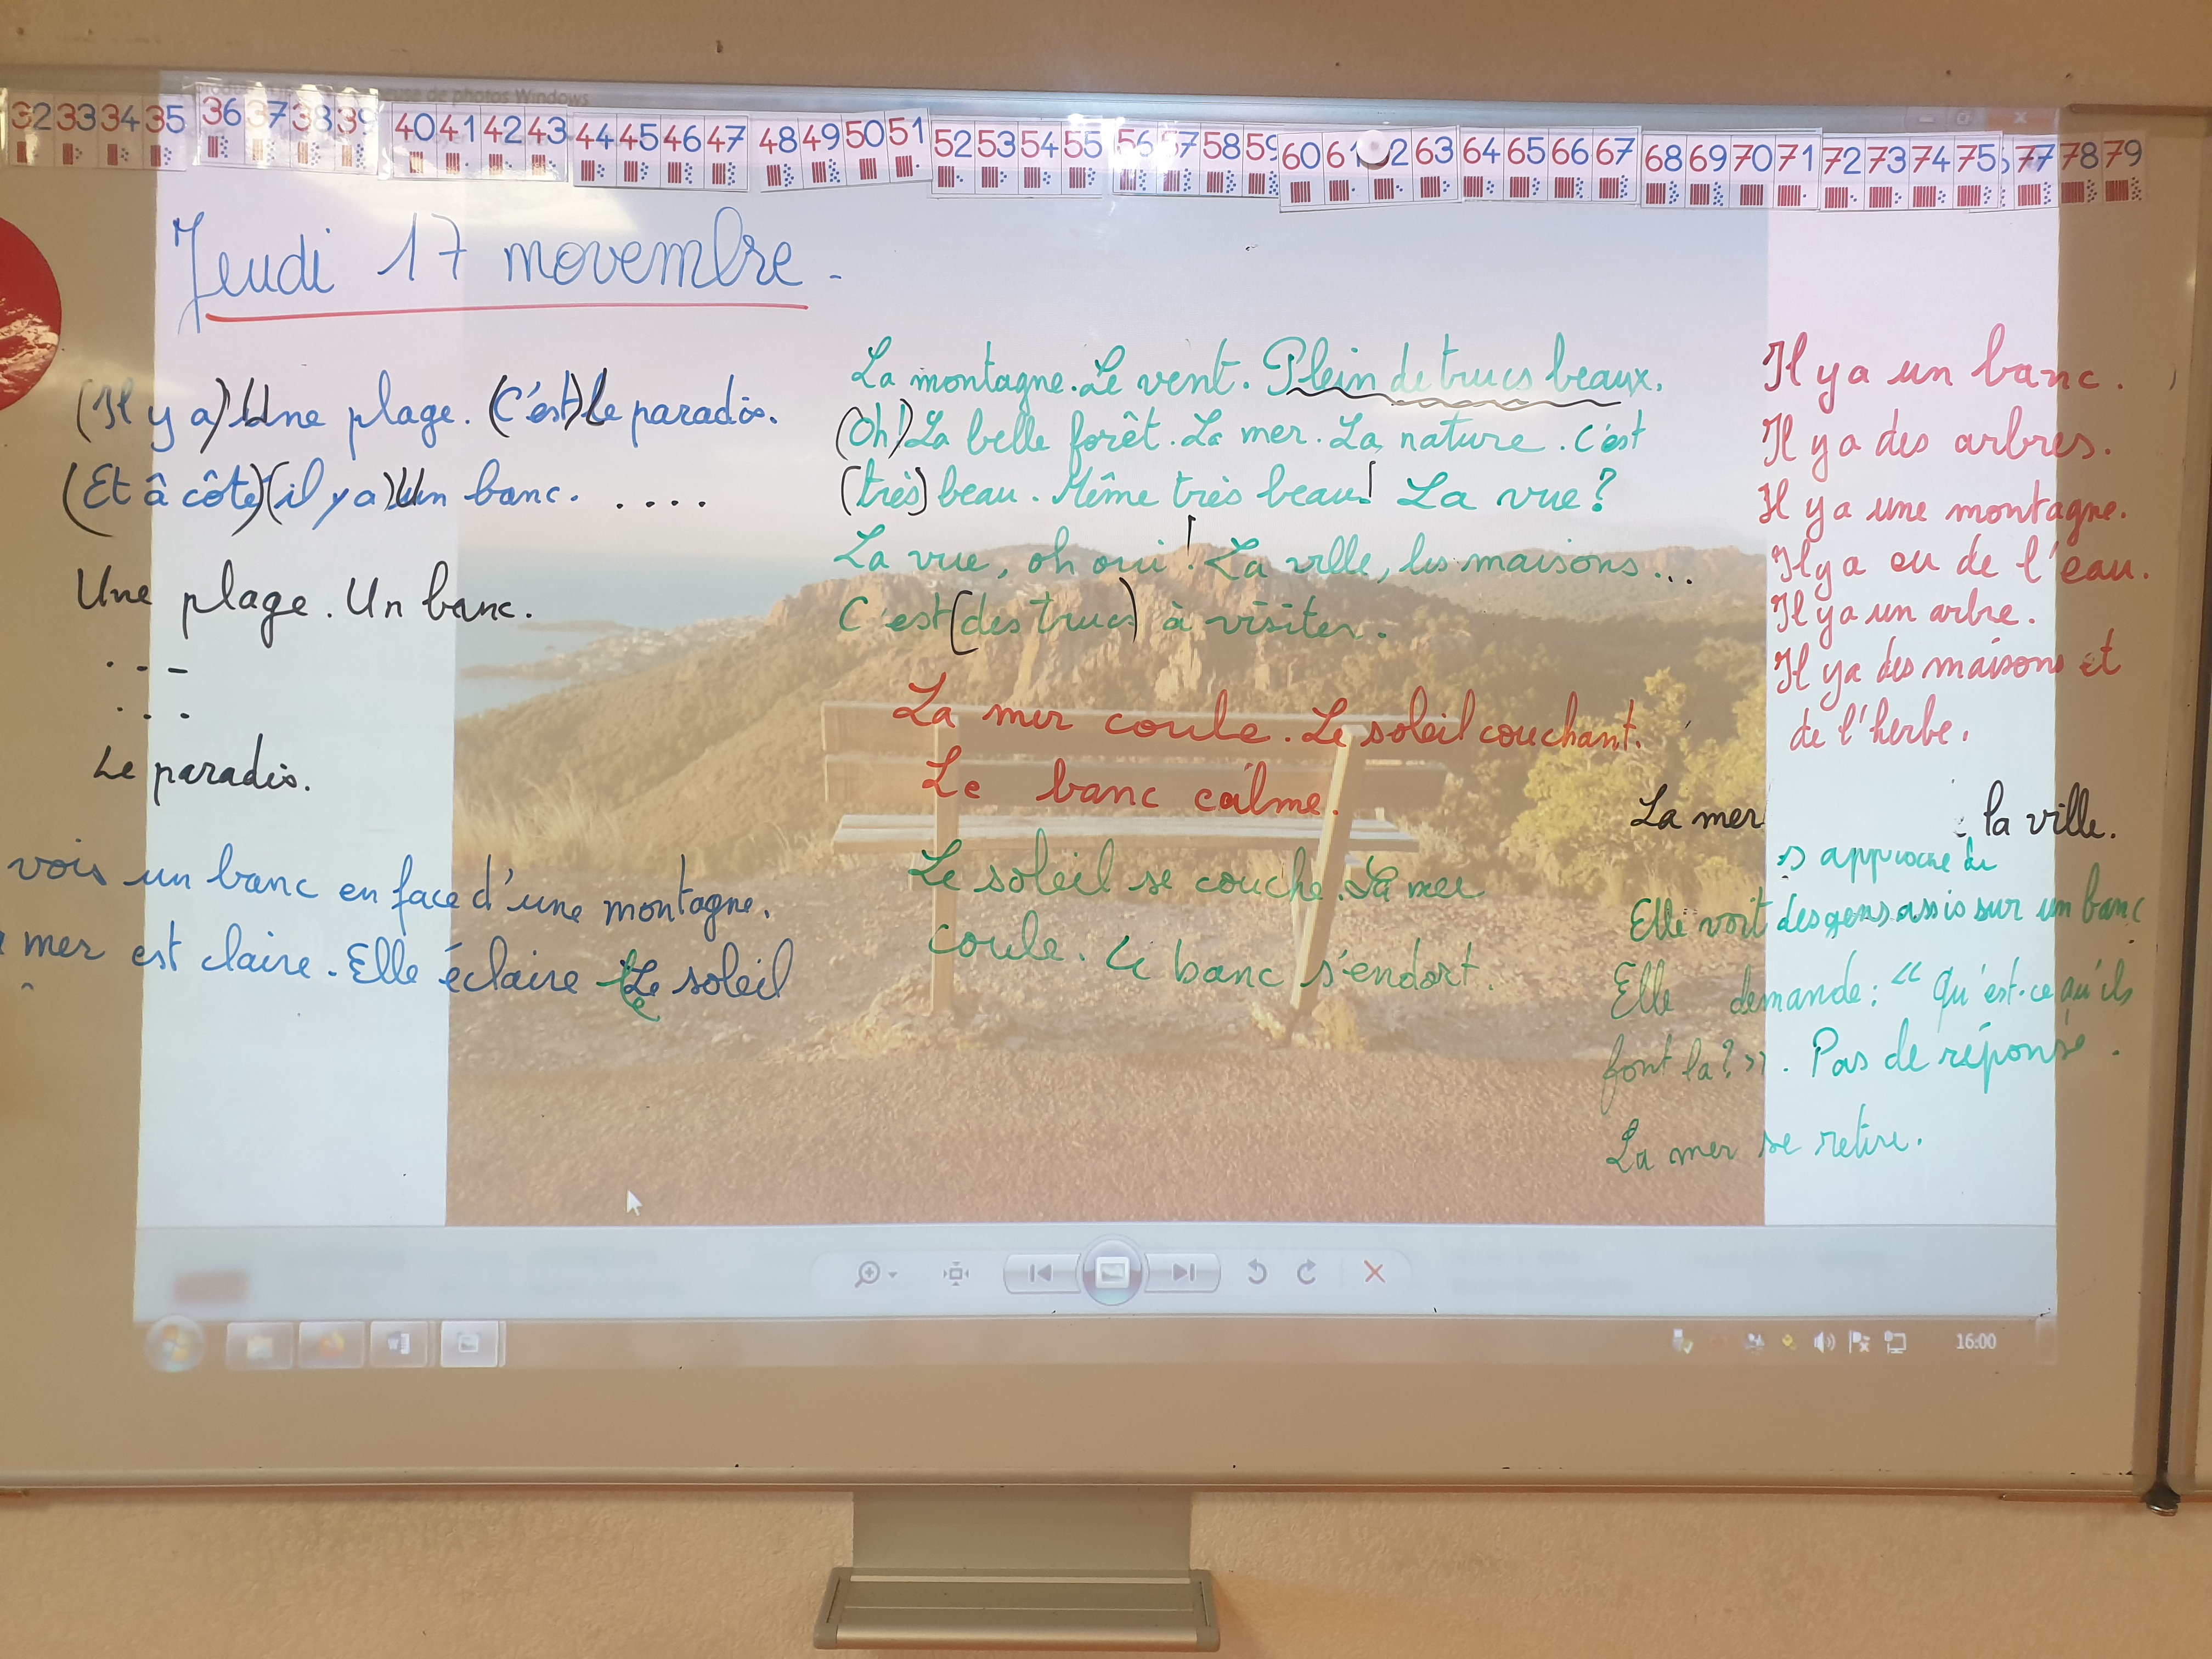 32 33 34 35 36 37 38 39 40 41 42 43 44 45 46 47 48 49 50 51 52 53 54 55 56 57 58 59 60 61 2 63 64 65 66 67 68 69 70 71 72 73 74 75 77 78 79
de photos Windows
Jeudi 17 novembre.
(Il y a) Une plage. (C'est) le paradis.
(Et à côté) (il y a) Un banc. ....
Une plage. Un banc.
...
...
Le paradis.
vois un banc en face d'une montagne.
mer est claire. Elle éclaire le soleil
La montagne. Le vent. Plein de trucs beaux.
(Oh!) La belle forêt. La mer. La nature. C'est
(très) beau. Même très beau! La vue?
La vue, oh oui! La ville, les maisons...
C'est (des trucs) à visiter.
La mer coule. Le soleil couchant.
Le banc calme.
Le soleil se couche. La mer
coule. Le banc s'endort.
Il y a un banc.
Il y a des arbres.
Il y a une montagne.
Il y a ou de l'eau.
Il y a un arbre.
Il y a des maisons et
de l'herbe.
La mer la ville.
s approche de
Elle voit des gens assis sur un banc
Elle demande: « Qu'est-ce qu'ils
font là? ». Pas de réponse.
La mer se retire.
16:00